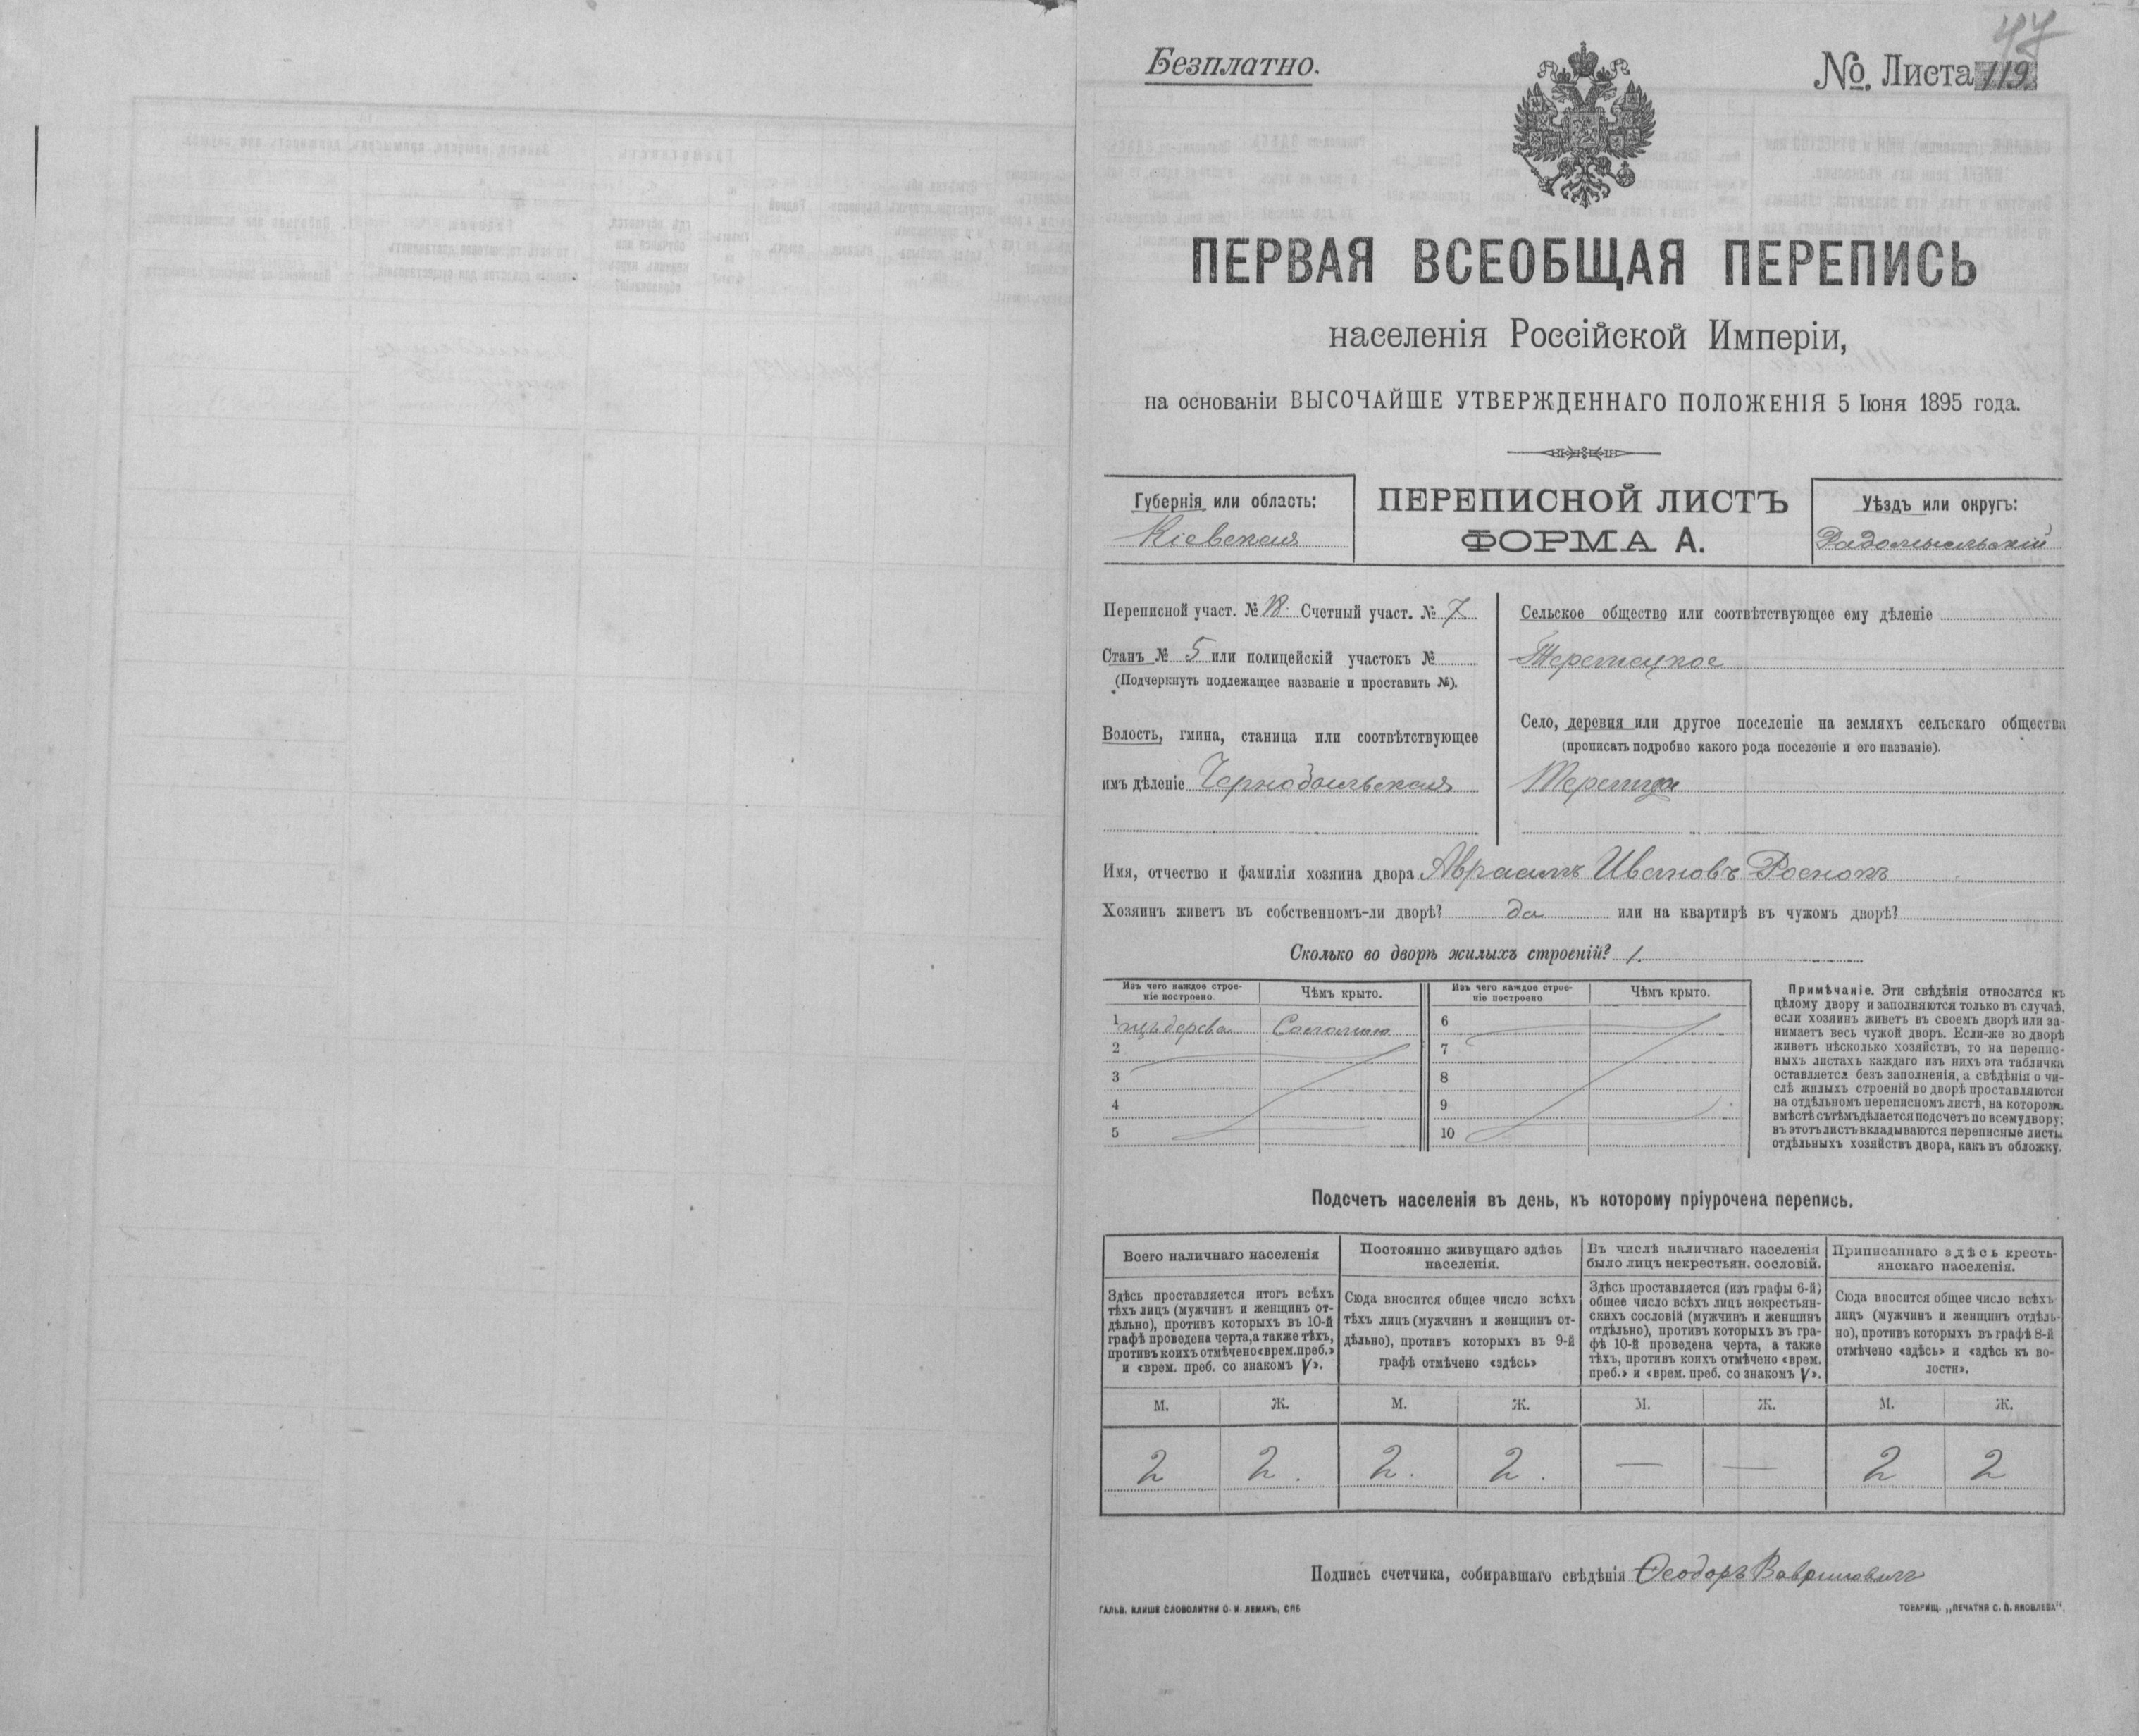 47
Безплатно.
№ Листа 119.
ПЕРВАЯ ВСЕОБЩАЯ ПЕРЕПИСЬ
населенія Россійской Имперіи,
на основаніи ВЫСОЧАЙШЕ УТВЕРЖДЕННАГО ПОЛОЖЕНІЯ 5 Іюня 1895 года.
Губернія или область:
Кіевская
ПЕРЕПИСНОЙ ЛИСТЪ
ФОРМА А.
Уѣздъ или округъ:
Радомысльскій
Переписной участ. № Счетный участ. № 7
Станъ № 5 или полицейскій участокъ №
(Подчеркнуть подлежащее названіе и проставить №).
Волость, гмина, станица или соотвѣтствующее
имъ дѣленіе Чернобыльская
Сельское общество или соотвѣтствующее ему дѣленіе
Теремецкое
Село, деревня или другое поселеніе на земляхъ сельскаго общества
(прописать подробно какого рода поселеніе и его названіе).
Теремцы
Имя, отчество и фамилія хозяина двора Авраамъ Ивановъ
Хозяинъ живетъ въ собственномъ-ли дворѣ? да или на квартирѣ въ чужомъ дворѣ?
Сколько во дворѣ жилыхъ строеній? 1.
Изъ чего каждое строе-
ніе построено
Чѣмъ крыто.
Изъ чего каждое строе-
ніе построено
Чѣмъ крыто.
1 изъ дерева Соломою
2
3
4
5
6
7
8
9
10
Примѣчаніе. Эти свѣдѣнія относятся къ
цѣлому двору и заполняются только въ случаѣ,
если хозяинъ живетъ въ своемъ дворѣ или за-
нимаетъ весь чужой дворъ. Если-же во дворѣ
живетъ нѣсколько хозяйствъ, то на перепис-
ныхъ листахъ каждаго изъ нихъ эта табличка
оставляется безъ заполненія, а свѣдѣнія о чи-
слѣ жилыхъ строеній во дворѣ проставляются
на отдѣльномъ переписномъ листѣ, на которомъ
вмѣстѣ съ тѣмъ дѣлается подсчетъ по всему двору;
въ этотъ листъ вкладываются переписные листы
отдѣльныхъ хозяйствъ двора, какъ въ обложку.
Подсчетъ населенія въ день, къ которому пріурочена перепись.
Всего наличнаго населенія
Здѣсь проставляется итогъ всѣхъ
тѣхъ лицъ (мужчинъ и женщинъ от-
дѣльно), противъ которыхъ въ 10-й
графѣ проведена черта, а также тѣхъ,
противъ коихъ отмѣчено «врем. преб.»
и «врем. преб. со знакомъ V».
Постоянно живущаго здѣсь
населенія.
Сюда вносится общее число всѣхъ
тѣхъ лицъ (мужчинъ и женщинъ от-
дѣльно), противъ которыхъ въ 9-й
графѣ отмѣчено «здѣсь»
Въ числѣ наличнаго населенія
было лицъ некрестьян. сословій.
Здѣсь проставляется (изъ графы 6-й)
общее число всѣхъ лицъ некрестьян-
скихъ сословій (мужчинъ и женщинъ
отдѣльно), противъ которыхъ въ гра-
фѣ 10-й проведена черта, а также
тѣхъ, противъ коихъ отмѣчено «врем.
преб.» и «врем. преб. со знакомъ V».
Приписаннаго здѣсь кресть-
янскаго населенія.
Сюда вносится общее число всѣхъ
лицъ (мужчинъ и женщинъ отдѣль-
но), противъ которыхъ въ графѣ 8-й
отмѣчено «здѣсь» и «здѣсь къ во-
лости».
М. Ж. М. Ж. М. Ж. М. Ж.
2 2. 2. 2. — — 2 2
Подпись счетчика, собиравшаго свѣдѣнія Ѳеодоръ
ГАЛЬВ. КЛИШЕ СЛОВОЛИТНИ О. И. ЛЕМАНЪ, СПБ
ТОВАРИЩ. „ПЕЧАТНЯ С. П. ЯКОВЛЕВА".